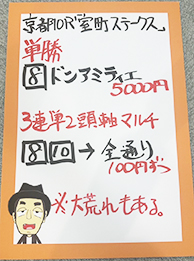 京都10R「室町ステークス」
単勝
8 ドンアミティエ
5000円
3連単2頭軸マルチ
8 → 全通り
100円ずつ
※大荒れもある。